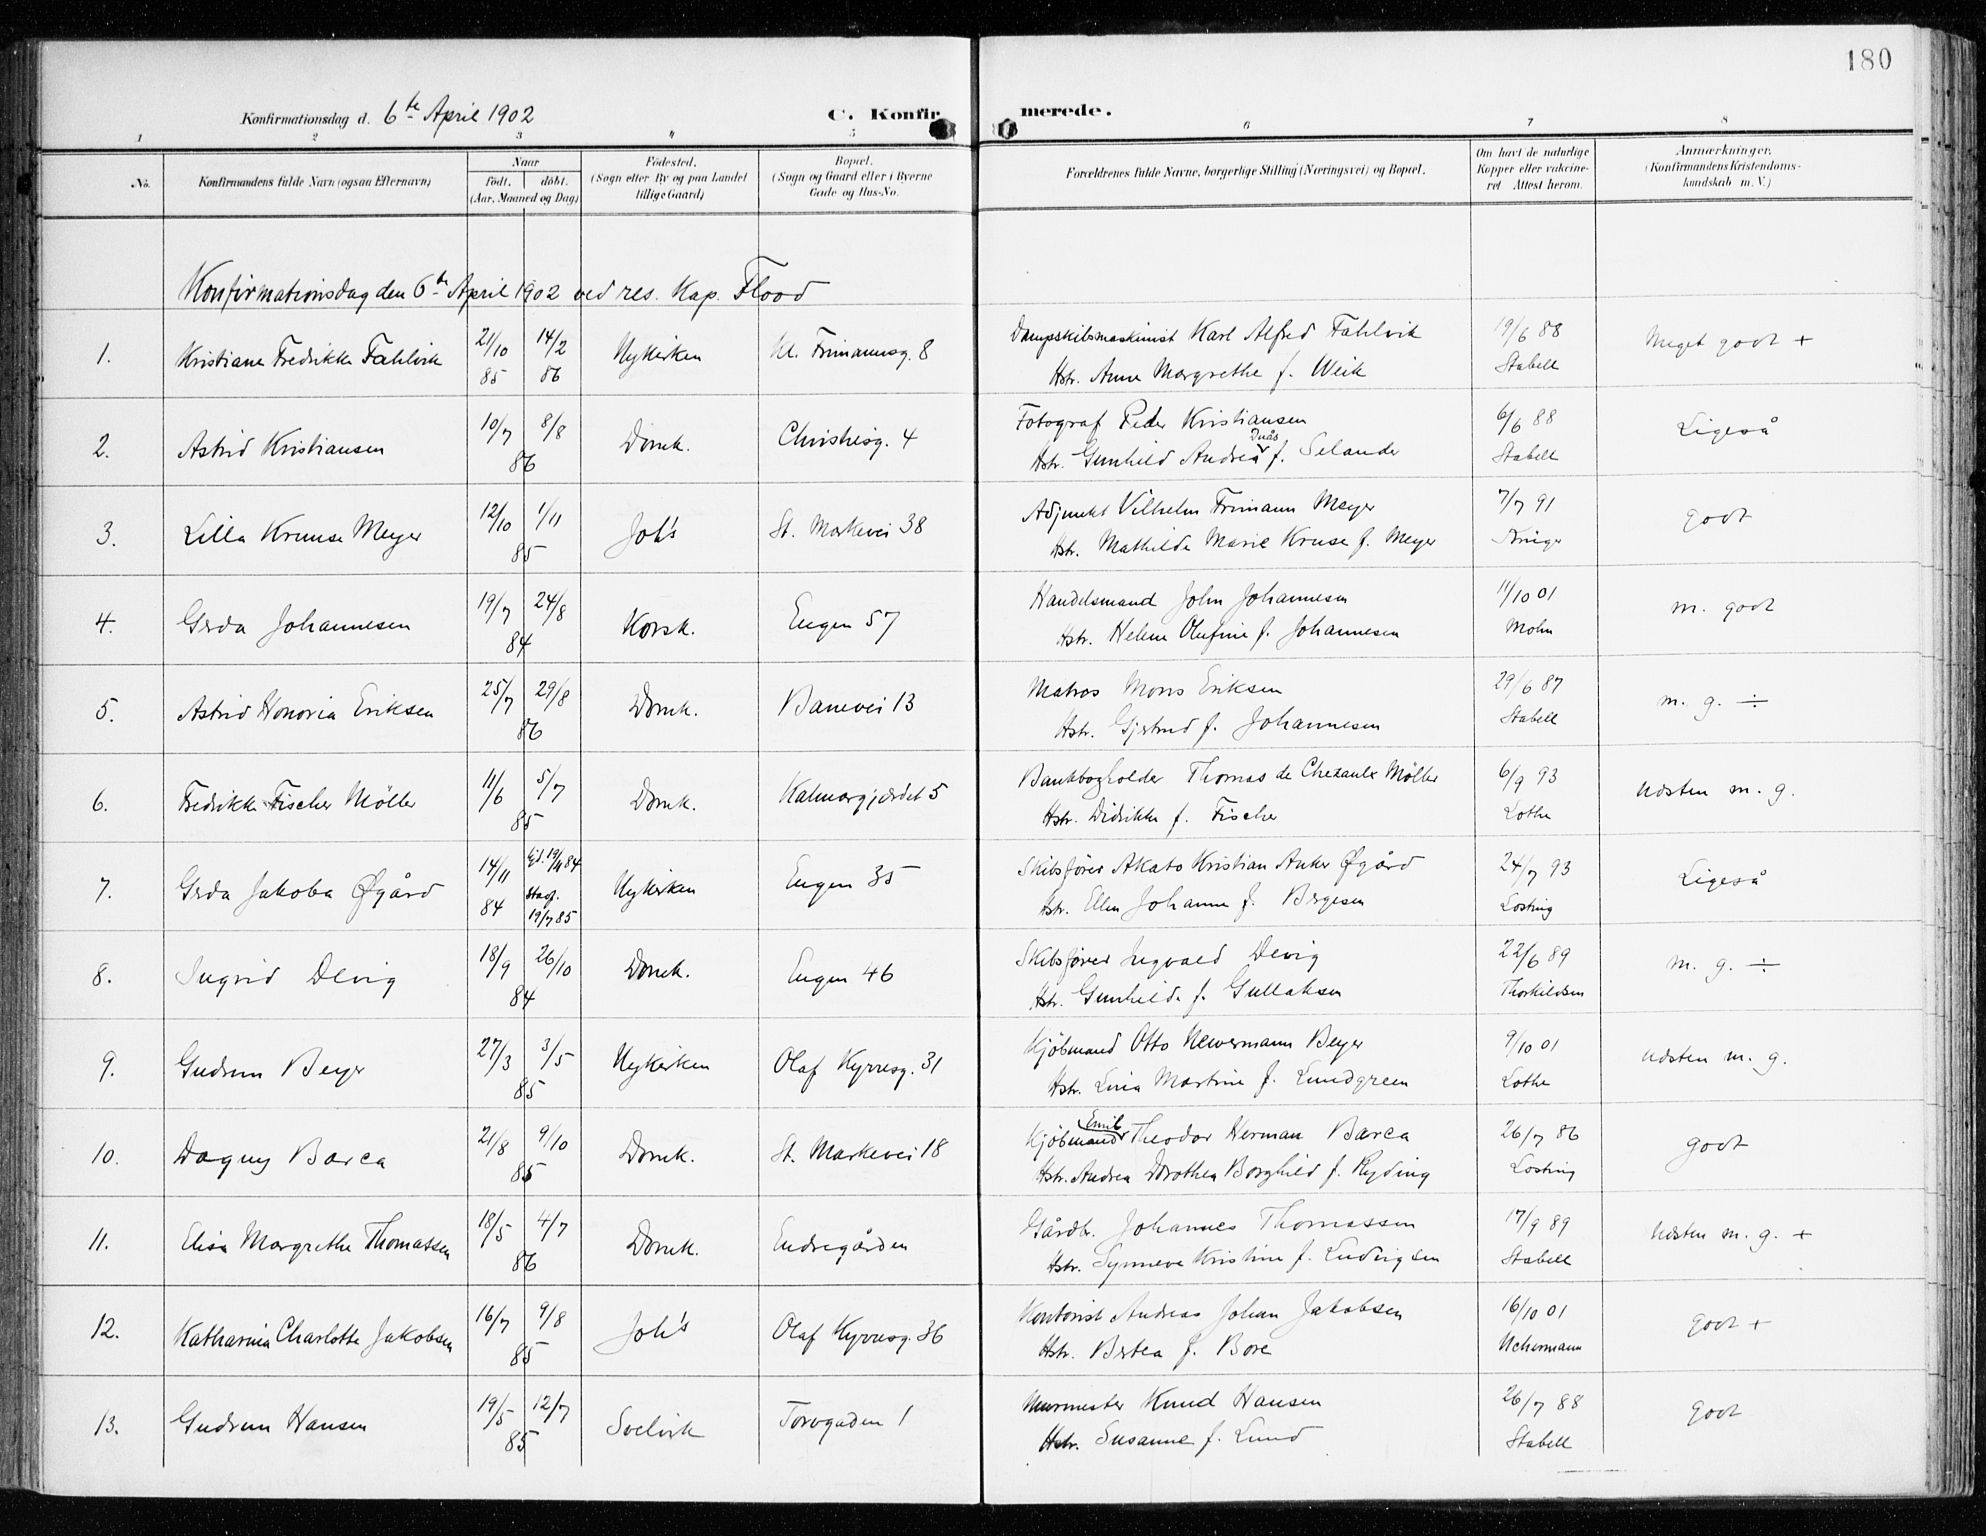 180
Konfirmationsdag d. 6te April 1902 C. Konfirmerede.
1 2 3 4 5 6 7 8
No. Konfirmandens fulde Navn (ogsaa Efternavn) Naar født. døbt. (Aar, Maaned og Dag) Fødested. (Sogn eller By og paa Landet tillige Gaard) Bopæl. (Sogn og Gaard eller i Byerne Gade og Hus-No. Forældrenes fulde Navne, borgerlige Stilling (Næringsvei) og Bopæl. Om havt de naturlige Kopper eller vakcineret Attest herom. Anmærkninger. (Konfirmandens Kristendomskundskab m. V.)
Konfirmationsdag den 6te April 1902 ved res. Kap. Flood
1. Kristiane Fredrikke Fahlvik 21/10 85 14/2 86 Nykirken Kl. Frimannsg. 8 Dampskibsmaskinist Karl Alfred Fahlvik 19/6 88 Meget godt +
Hstr. Anne Margrethe f. Weik Stabell
2. Astrid Kristiansen 10/7 8/8 86 Domk. Christiesg. 4 Fotograf Peder Kristiansen 6/6 88 Ligeså
Hstr. Gunhild Andrea Duås f. Selander Stabell
3. Lilla Krunse Meyer 12/10 1/11 85 Joh's St. Markevei 38 Adjunkt Vilhelm Frimann Meyer 7/7 91 godt
Hstr. Mathilde Marie Kruse f. Meyer Krüger
4. Gerda Johannesen 19/7 24/8 84 Korsk. Engen 57 Handelsmand John Johannesen 11/10 01 m. godt
Hstr. Helene Olufine f. Johannesen Mohn
5. Astrid Honoria Eriksen 25/7 29/8 86 Domk. Banevei 13 Matros Mons Eriksen 29/6 87 m. g. ÷
Hstr. Gjertrud f. Johannesen Stabell
6. Fredrikke Fischer Møller 11/6 5/7 85 Domk. Kalmargjærdet 5 Bankbogholder Thomas de Chezaulx Møller 6/9 93 Næsten m. g.
Hstr. Didrikke f. Fischer Lothe
7. Gerda Jakoba Øgård 14/11 84 hjd. 19/11 84 Stadf. 19/7 85 Nykirken Engen 35 Skibsfører Akato Kristian Anker Øgård 24/7 93 Ligeså
Hstr. Ellen Johanne f. Børgesen Losting
8. Ingrid Devig 18/9 26/10 84 Domk. Engen 46 Skibsfører Ingvald Devig 22/6 89 m. g. ÷
Hstr. Gunhilde f. Gullaksen Thorkildsen
9. Gudrun Beyer 27/3 3/5 85 Nykirken Olaf Kyrresg. 31 Kjøbmand Otto Newermann Beyer 9/10 01 Næsten m. g.
Hstr. Lina Martine f. Lundgreen Lothe
10. Dagny Barca 21/8 9/10 85 Domk. St. Markevei 18 Kjøbmand Emil Theodor Herman Barca 26/7 86 godt
Hstr. Andrea Dorothea Borghild f. Ryding Losting
11. Elisa Margrethe Thomassen 18/5 4/7 86 Domk. Endregården Gårdbr. Johannes Thomassen 17/9 89 Næsten m. g. +
Hstr. Synneve Kristine f. Ludvigsen Stabell
12. Katharina Charlotte Jakobsen 16/7 9/8 85 Joh's Olaf Kyrresg. 36 Kontorist Andreas Johan Jakobsen 16/10 01 godt +
Hstr. Bertea f. Bore Uchermann
13. Gudrun Hansen 19/5 12/7 85 Svelvik Torvgaden 1 Murmester Knud Hansen 26/7 88 godt
Hstr. Susanne f. Lund Stabell